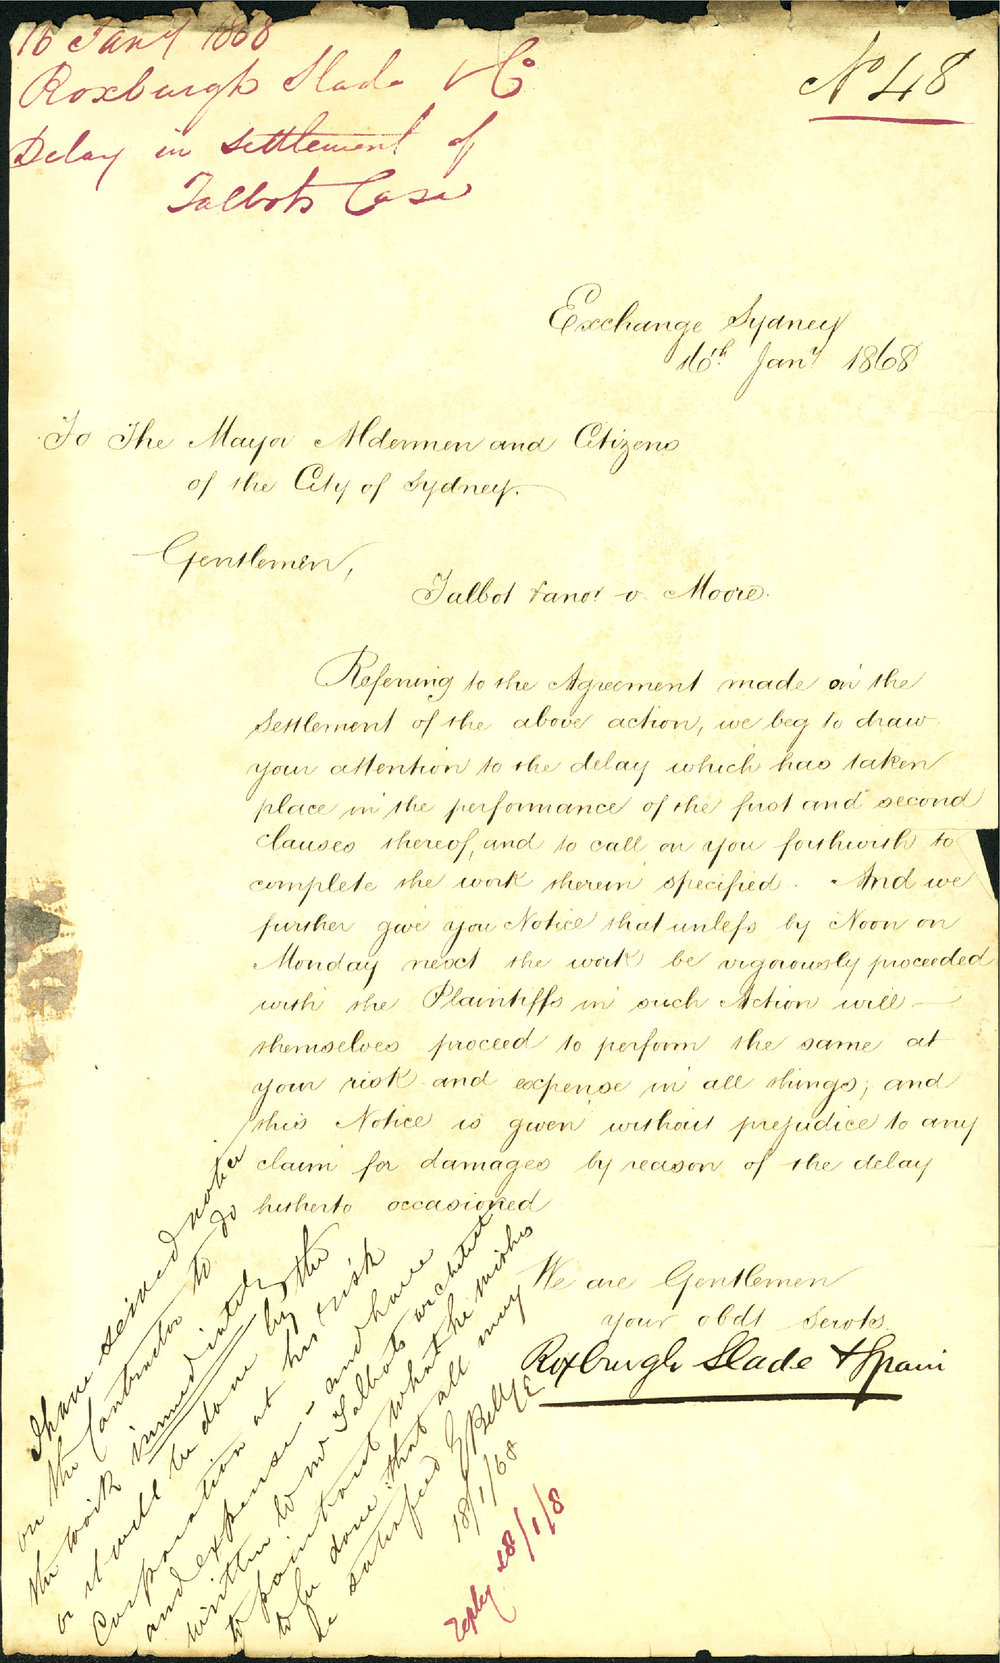 16 Jany 1868
Roxburgh Slade & Co
Delay in settlement of
Talbots Case
No 48
Exchange Sydney
16th Jany 1868
To The Mayor Aldermen and Citizens
of the City of Sydney.
Gentlemen,
Talbot & anor v. Moore.
Referring to the Agreement made on the
Settlement of the above action, we beg to draw
your attention to the delay which has taken
place in the performance of the first and second
clauses thereof, and to call on you forthwith to
complete the work therein specified. And we
further give you Notice that unless by Noon on
Monday next the work be vigorously proceeded
with the Plaintiffs in such Action will
themselves proceed to perform the same at
your risk and expense in all things, and
this Notice is given without prejudice to any
claim for damages by reason of the delay
hitherto occasioned
We are Gentlemen
your obdt Servts
Roxburgh Slade & Spain
I have served notice
on the Contractor to do
the work immediately
or it will be done by the
Corporation at his risk
and expense - and have
written to Mr Talbots architect
to point out what he wishes
to be done that all may
be satisfied E Bell CE
18/1/68
reply 28/1/8